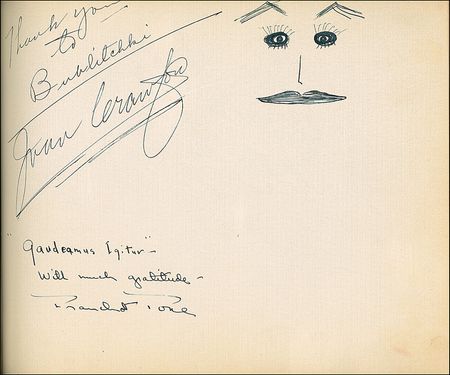 Thank you
to
Bublitchki
Joan Crawford
"Gaudeamus Igitur" -
With much gratitude -
Franchot Tone